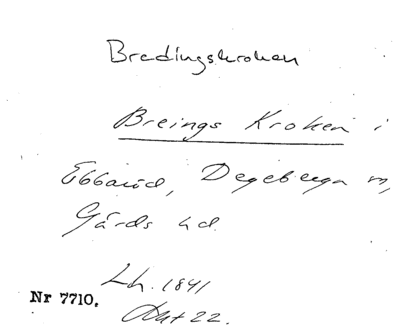 Bredingskroken
Breings Kroken i
Ebbarid, Degeberga sn,
Gärds hd.
Lh. 1841
Nr 7710.
Akt 22.